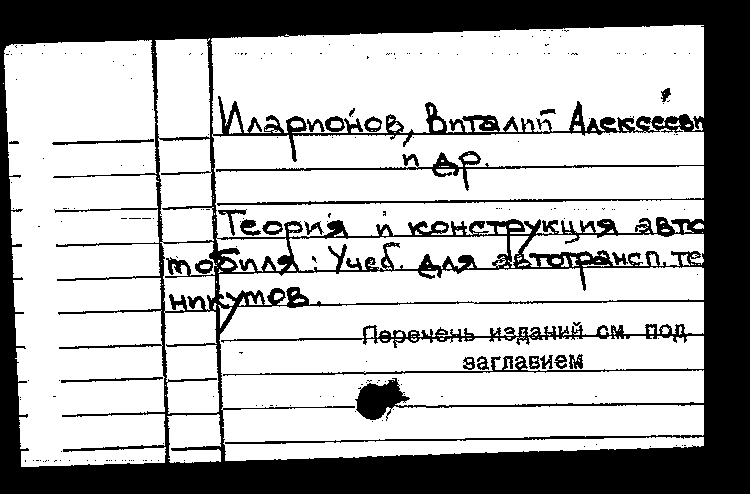 Иларионов, Виталий Алексеевич
и др.
Теория и конструкция авто
мобиля: Учеб. для автотрансп. тех
никумов.
Перечень изданий см. под
заглавием